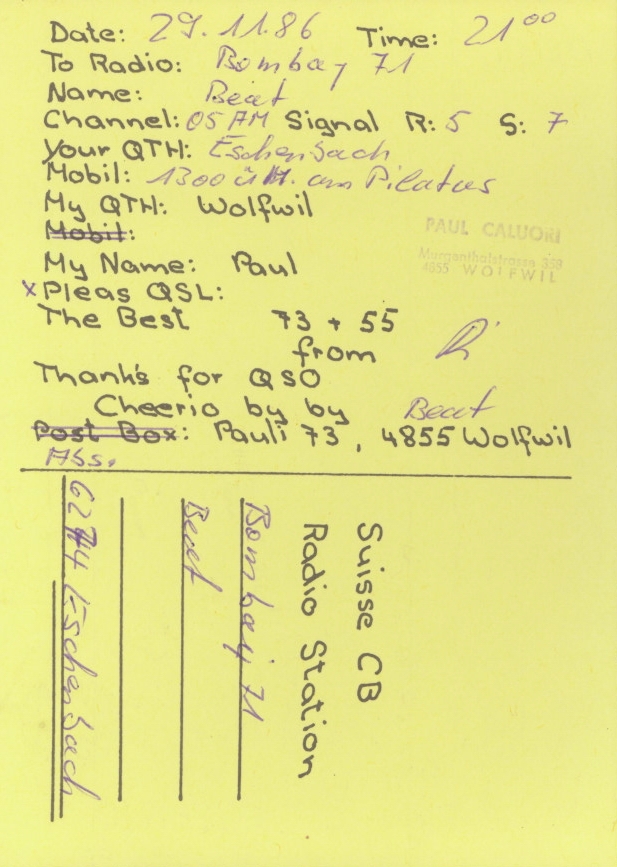 Date: 29.11.86 Time: 21⁰⁰
To Radio: Bombay 71
Name: Beat
Channel: 05 AM Signal R: 5 S: 7
Your QTH: Eschenbach
Mobil: 1300 ü M. am Pilatus
My QTH: Wolfwil
Mobil:
PAUL CALUORI
Murgenthalstrasse 358
4855 WOLFWIL
My Name: Paul
x Pleas QSL:
The Best 73 + 55
from
Thank's for QSO
Cheerio by by Beat
Post Box: Pauli 73, 4855 Wolfwil
Abs.
Suisse CB
Radio Station
Bombay 71
Beat
6274 Eschenbach